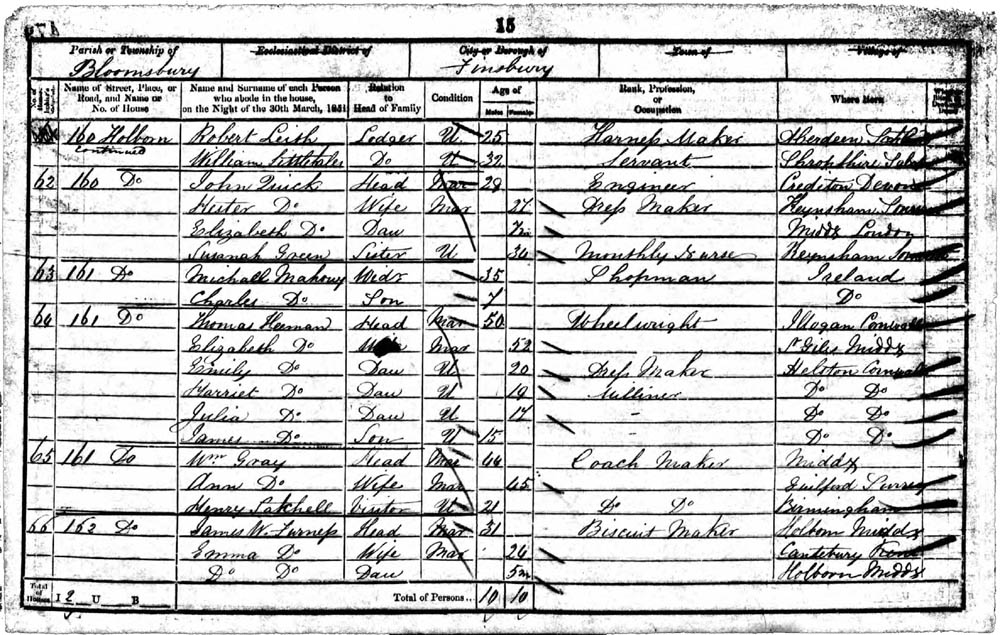 15
Parish or Township of Ecclesiastical District of City or Borough of Town of Village of
Bloomsbury Finsbury
Name of Street, Place, or Road, and Name or No. of House Name and Surname of each Person who abode in the house, on the Night of the 30th March, 1851 Relation to Head of Family Condition Age of Males Females Rank, Profession, or Occupation Where Born
160 Holborn Robert Leish Lodger U 25 Harness Maker Aberdeen
continued William Do U 32 Servant Shropshire
62 160 Do John Quick Head Mar 29 Engineer Crediton Devon
Hester Do Wife Mar 27 Dress Maker Keynsham
Elizabeth Do Dau Middx London
Susanah Green Sister U 30 Monthly Nurse Keynsham
63 161 Do Michall Mahony Widr 35 Shopman Ireland
Charles Do Son 7 Do
64 161 Do Thomas Heeman Head Mar 50 Wheelwright Illogan Cornwall
Elizabeth Do Mar 52 St Giles Middx
Emily Do Dau U 20 Dress Maker Helston Cornwall
Harriet Do Dau U 19 Milliner Do Do
Julia Do Dau U 17 - Do Do
James Do Son U 15 - Do Do
65 161 Do Wm Gray Head Mar 44 Coach Maker Middx
Ann Do Wife Mar 45 Guilford Surrey
Henry Satchell Visitor U 21 Do Do Birmingham
66 162 Do James W. Furness Head Mar 31 Biscuit Maker Holborn Middx
Emma Do Wife Mar 26 Cantebury Kent
Do Do Dau 5m Holborn Middx
Total of Houses I 2 U B Total of Persons.. 10 10